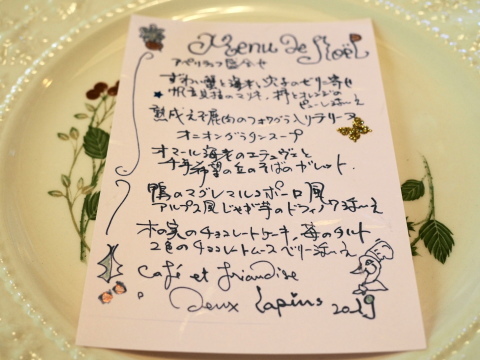 Menu de Noël
アペリティフ盛合せ
ずわい蟹と海老、穴子のゼリー寄せ
帆立貝柱のマリネ、柿とオレンジの
ピューレ添え
熟成えぞ鹿肉のフォワグラ入りテリーヌ
オニオングラタンスープ
オマール海老のエチュヴェと
希望の丘のそばのガレット
鴨のマグレマルコポーロ風
アルプス風じゃが芋のドフィノワ添え
木の実のチョコレートケーキ、苺のタルト
2色のチョコレートムース ベリー添え
Café et friandise
Deux Lapins